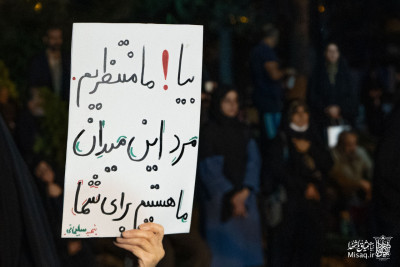 بیا! ما منتظریم.
مرد این میدان
ما هستیم برای شما
Misaq.ir